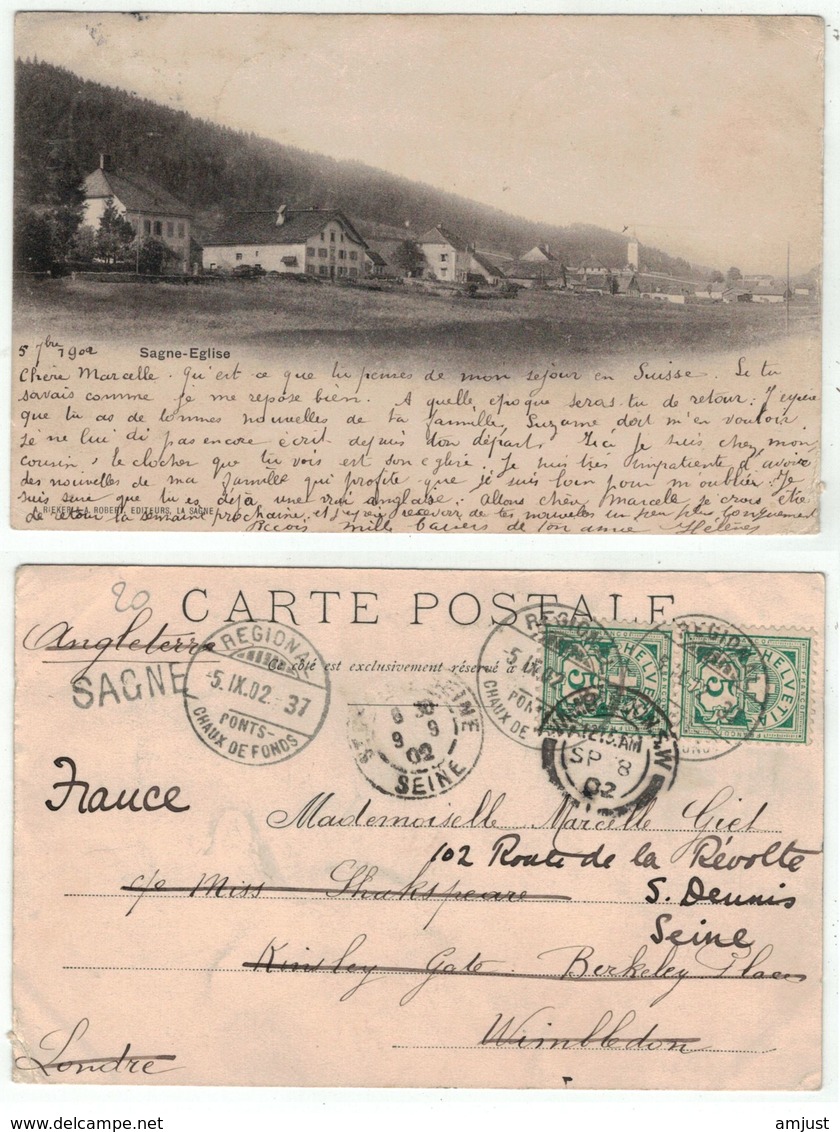 5 7bre 1902
Sagne-Eglise
Chère Marcelle. Qu'est ce que tu penses de mon sejour en Suisse. Si tu
savais comme je me repose bien. A quelle epoque seras tu de retour. J'espere
que tu as de bonnes nouvelles de ta famille, Suzanne doit m'en vouloir
je ne lui di pas encore écrit depuis ton départ. Ici je suis chez mon
cousin, le clocher que tu vois est son eglise. Je suis très impatiente d'avoir
des nouvelles de ma famille qui profite que je suis loin pour m'oublier. Je
suis sure que tu es déjà une vrai anglaise. Allons chère Marcelle je crois être
A. RIEKER & J. ROBERT, EDITEURS, LA SAGNE
de retour la semaine prochaine, et j'espère recevoir de tes nouvelles un peu plus longuement
Recois mille baisers de ton amie Hélène
20
CARTE POSTALE
Angleterre
Ce côté est exclusivement réservé à
SAGNE
REGIONAL
5.IX.02. 37
PONTS-
CHAUX DE FONDS
SEINE
9 9
02
SEINE
REGIONAL
5.IX.02
PONTS
CHAUX DE
HELVETIA
5
HELVETIA
5
WIMBLEDON S.W
12.15 AM
SP 8
02
France
Mademoiselle Marcelle Giet
102 Route de la Révolte
c/o Miss Shakspeare
S. Dennis
Seine
Kinsley Gate Berkeley Place
Wimbledon
Londre
amjust